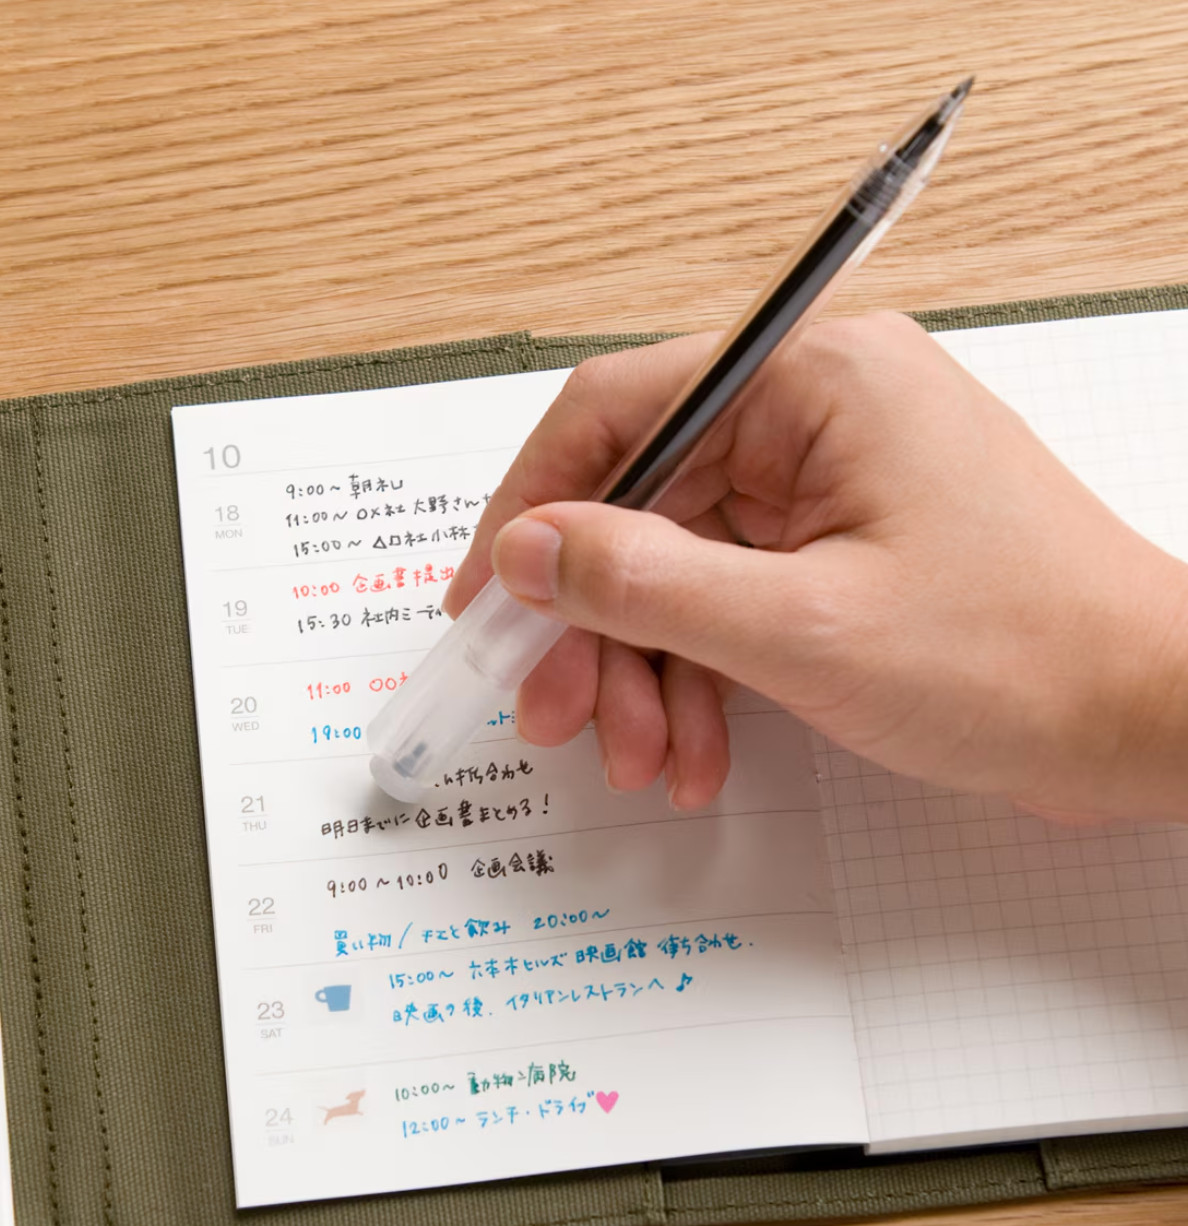 10
18
MON
9:00～ 朝礼
11:00～ ○×社 大野さん
15:00～ △□社 小林
19
TUE
10:00 企画書提出
15:30 社内ミーティ
20
WED
11:00 ○○
19:00
21
THU
打ち合わせ
明日までに企画書まとめる！
22
FRI
9:00～10:00 企画会議
買い物 / と飲み 20:00～
23
SAT
15:00～ 六本木ヒルズ 映画館 待ち合わせ.
映画の後. イタリアンレストランへ ♪
24
SUN
10:00～ 動物病院
12:00～ ランチ・ドライブ♥